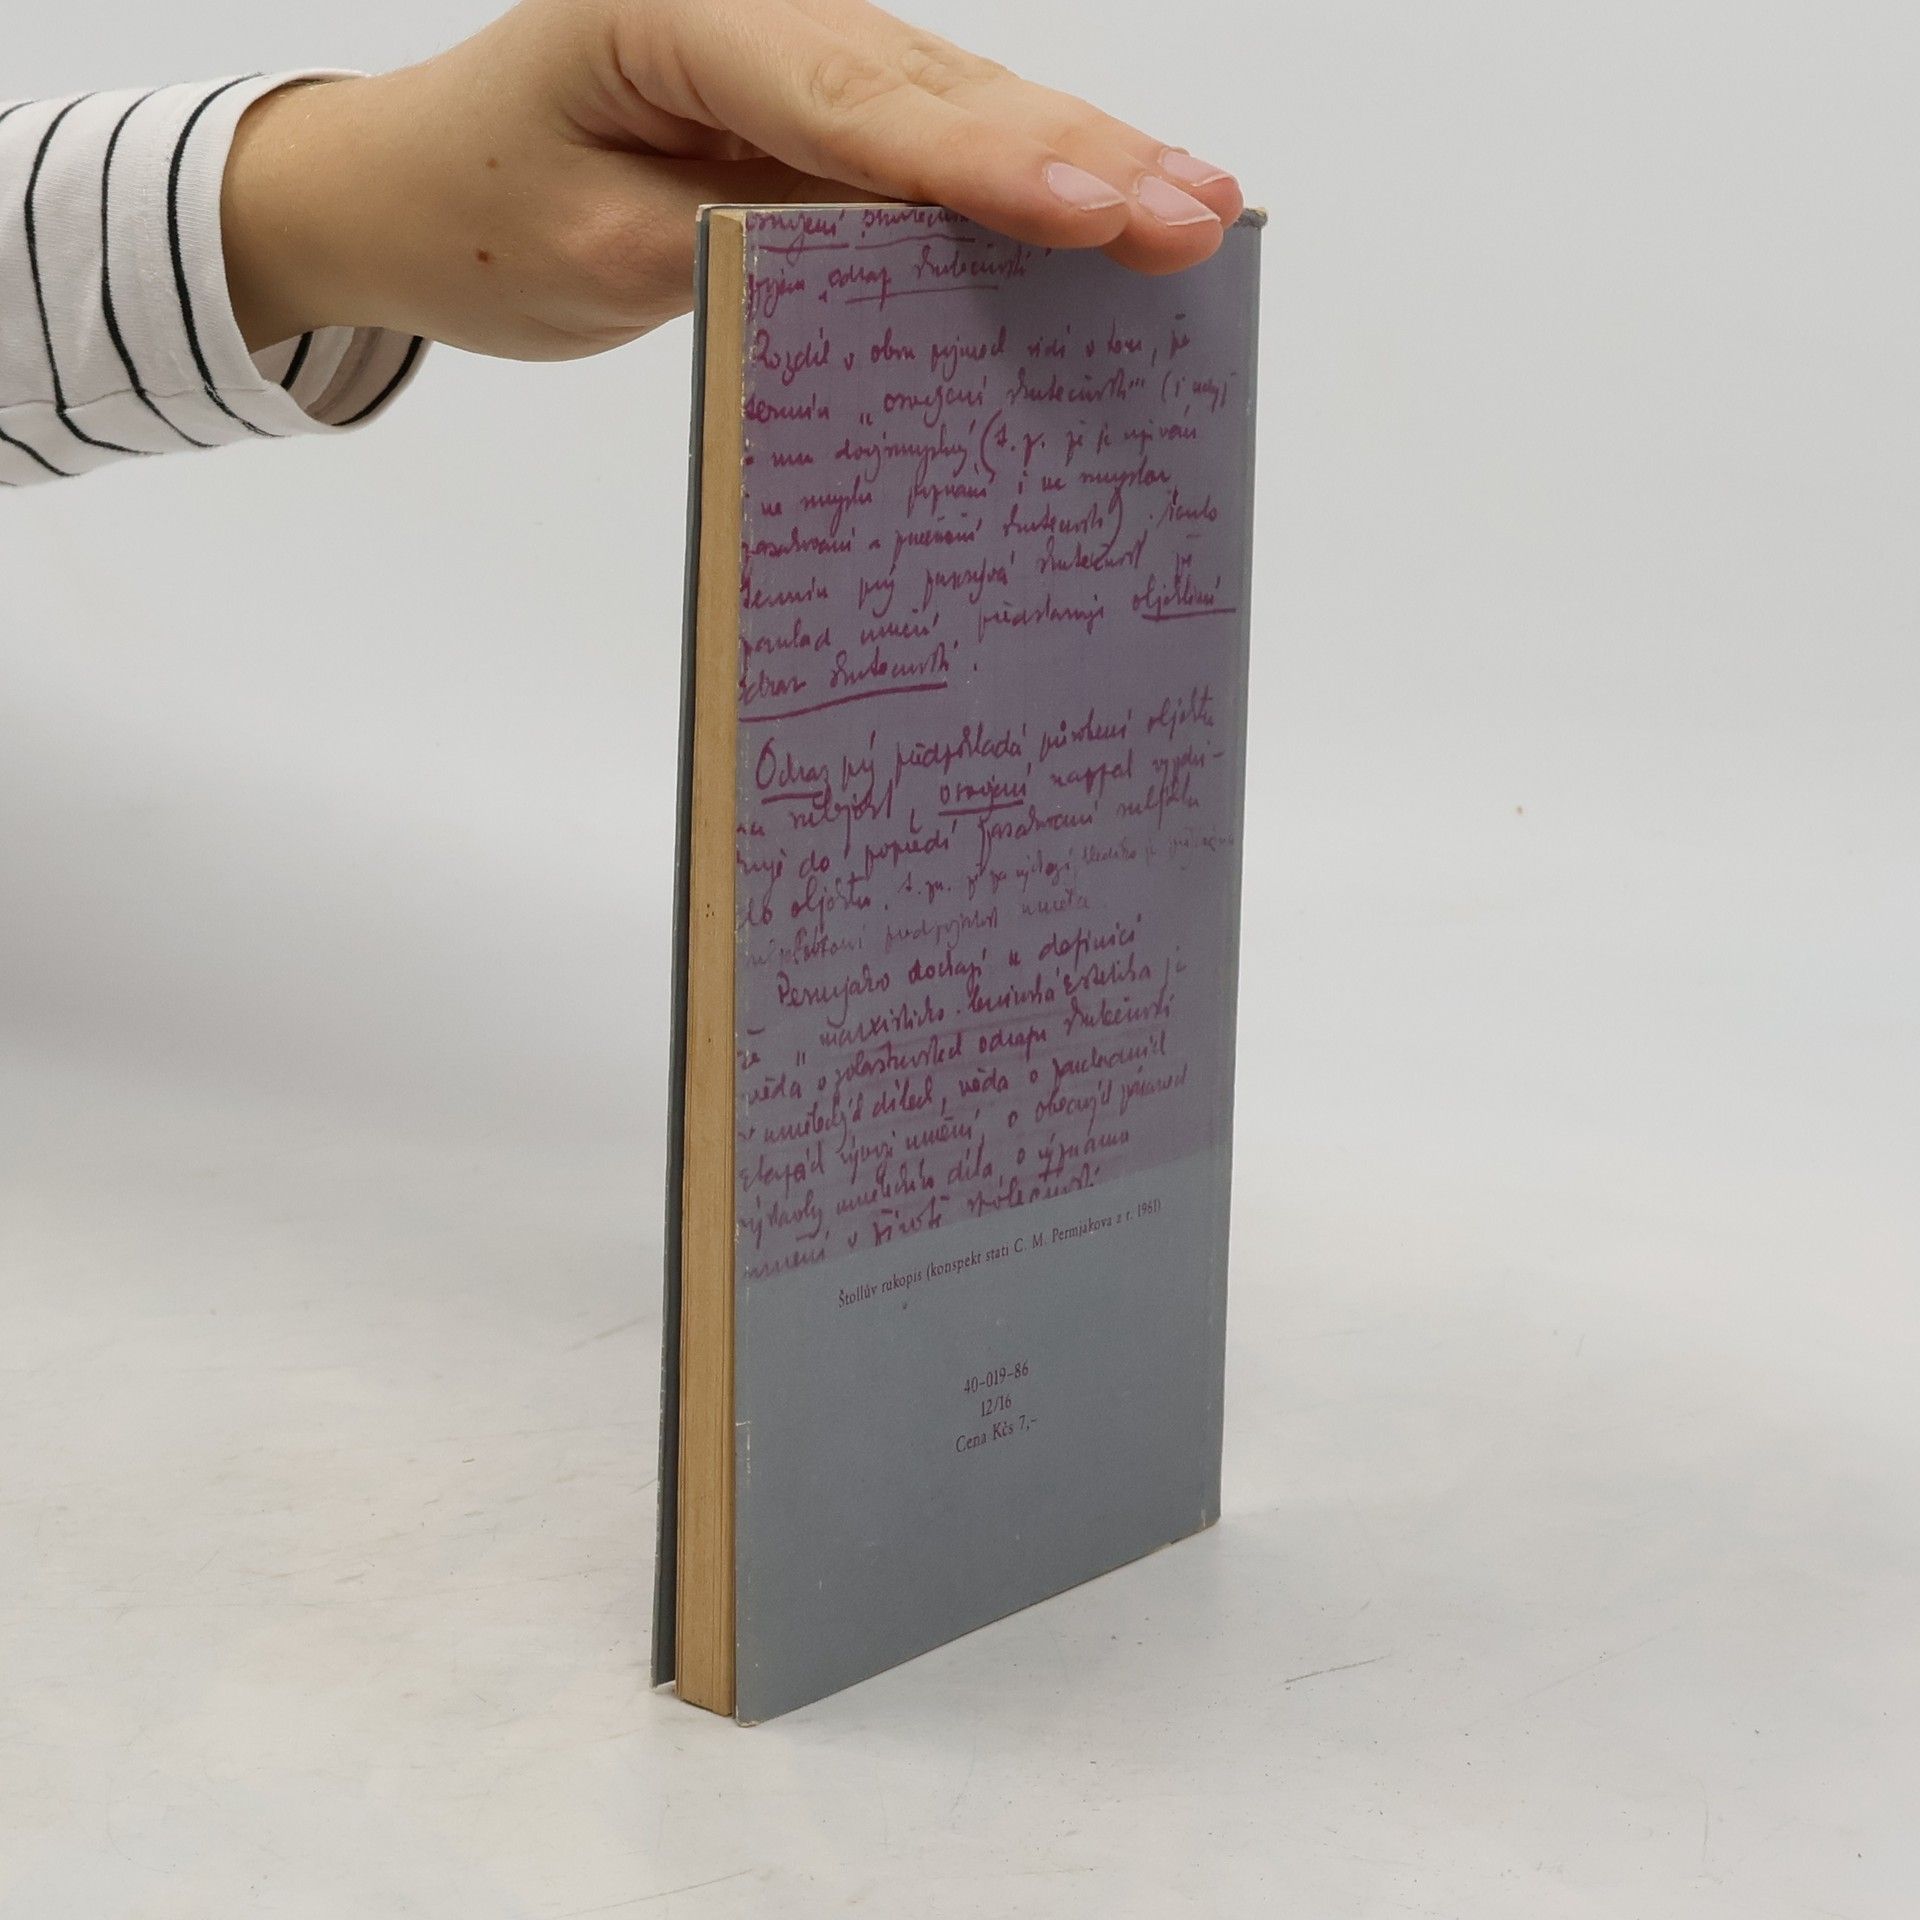 osvojení skutečnosti
pojem „odraz skutečnosti"
Rozdíl v obou pojmech vidí v tom, že
termín „osvojení skutečnosti" (i když
má dvojí smysl (t. j. že se užívá
ve smyslu poznání i ve smyslu
zasahování a přeměny skutečnosti). Tento
termín prý skutečnost že
základ umění, představuje objektivní
odraz skutečnosti.
Odraz prý předpokládá působení objektu
na subjekt, osvojení naopak vyzdvi-
huje do popředí zasahování subjektu
do objektu. t. zn. že
umělce
Permjakov dochází k definici
že „marxisticko-leninská estetika je
věda o zvláštnostech odrazu skutečnosti
v uměleckých dílech, věda o zákonných
etapách vývoje umění o obecných zákonech
výstavby uměleckého díla, o významu
umění v životě společnosti
Štollův rukopis (konspekt stati C. M. Permjakova z r. 1961)
40-019-86
12/16
Cena Kčs 7,-